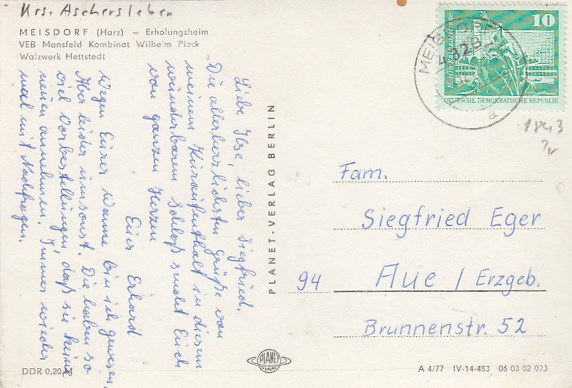 Krs. Aschersleben
MEISDORF (Harz) — Erholungsheim
VEB Mansfeld Kombinat Wilhelm Pieck
Walzwerk Hettstedt
Liebe Ilse, lieber Siegfried.
Die allerherzlichsten Grüße von
meinem Kuraufenthalt in diesem
wunderbaren Schloß sendet Euch
von ganzem Herzen
Euer Erhard
Wegen Eurer Wanne bin ich gewesen.
Aber leider umsonst. Die haben so
viel Vorbestellungen, daß sie keine
neuen annehmen. Immer wieder
mal mit Nachfragen.
PLANET-VERLAG BERLIN
10
DEUTSCHE DEMOKRATISCHE REPUBLIK
MEISDORF
4323
1843
Fam.
Siegfried Eger
94 Aue / Erzgeb.
Brunnenstr. 52
DDR 0,20 M
PLANET
A 4/77 IV-14-483 05 03 02 073